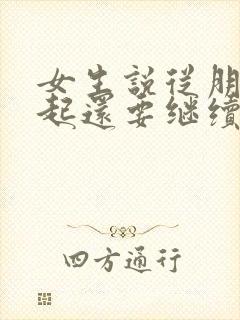 女生說從朋
起還要继續
四方通行